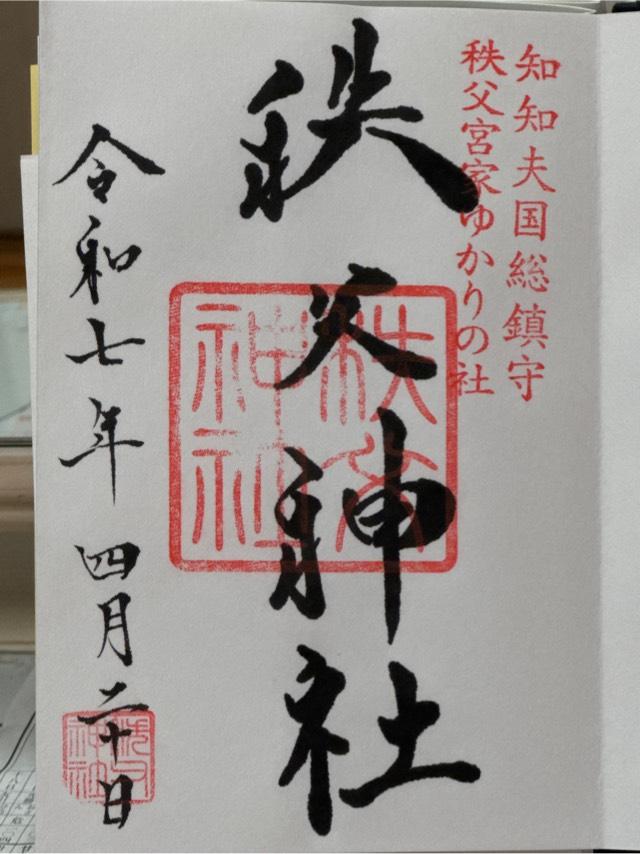 知知夫国総鎮守
秩父宮家ゆかりの社
秩父神社
秩父神社
令和七年 四月二十日
秩父神社